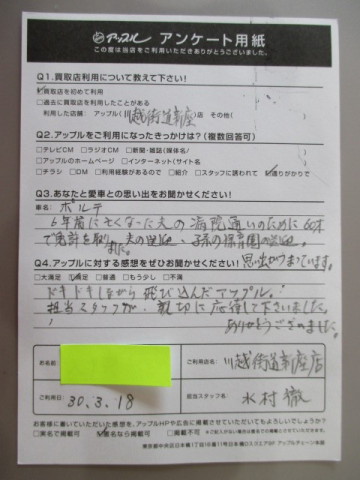 アップル アンケート用紙
この度は当店をご利用いただきありがとうございました。
Q1.買取店利用について教えて下さい!
買取店を初めて利用
□過去に買取店を利用したことがある
利用した店舗: アップル(川越街道新座)店 その他(
Q2.アップルをご利用になったきっかけは?(複数回答可)
□テレビCM □ラジオCM □新聞・雑誌(媒体名)
□アップルのホームページ □インターネット(サイト名
□チラシ □DM □利用経験があるので □紹介 □スタッフに誘われて 通りがかりで
Q3.あなたと愛車との思い出をお聞かせください!
車名: ポルテ
6年前に亡くなった夫の病院通いのために60才
で免許を取り、夫の送迎、子孫の保育園の送迎。
思い出がつまっています。
Q4.アップルに対する感想をぜひお聞かせください!
□大満足 満足 □普通 □もう少し □不満
ドキドキしながら飛び込んだアップル。!
担当スタッフが、親切に応待して下さいました。
ありがとうございました。
お名前
ご利用店名 川越街道新座店
ご利用日 30.3.18
担当スタッフ名 水村 徹
お客様に書いていただいた感想を、アップルHPや広告に掲載させていただいてもよろしいでしょうか?
□実名で掲載可 匿名なら掲載可 □掲載不可
東京都中央区日本橋1丁目16番11号日本橋Dスクエア5F アップルチェーン本部